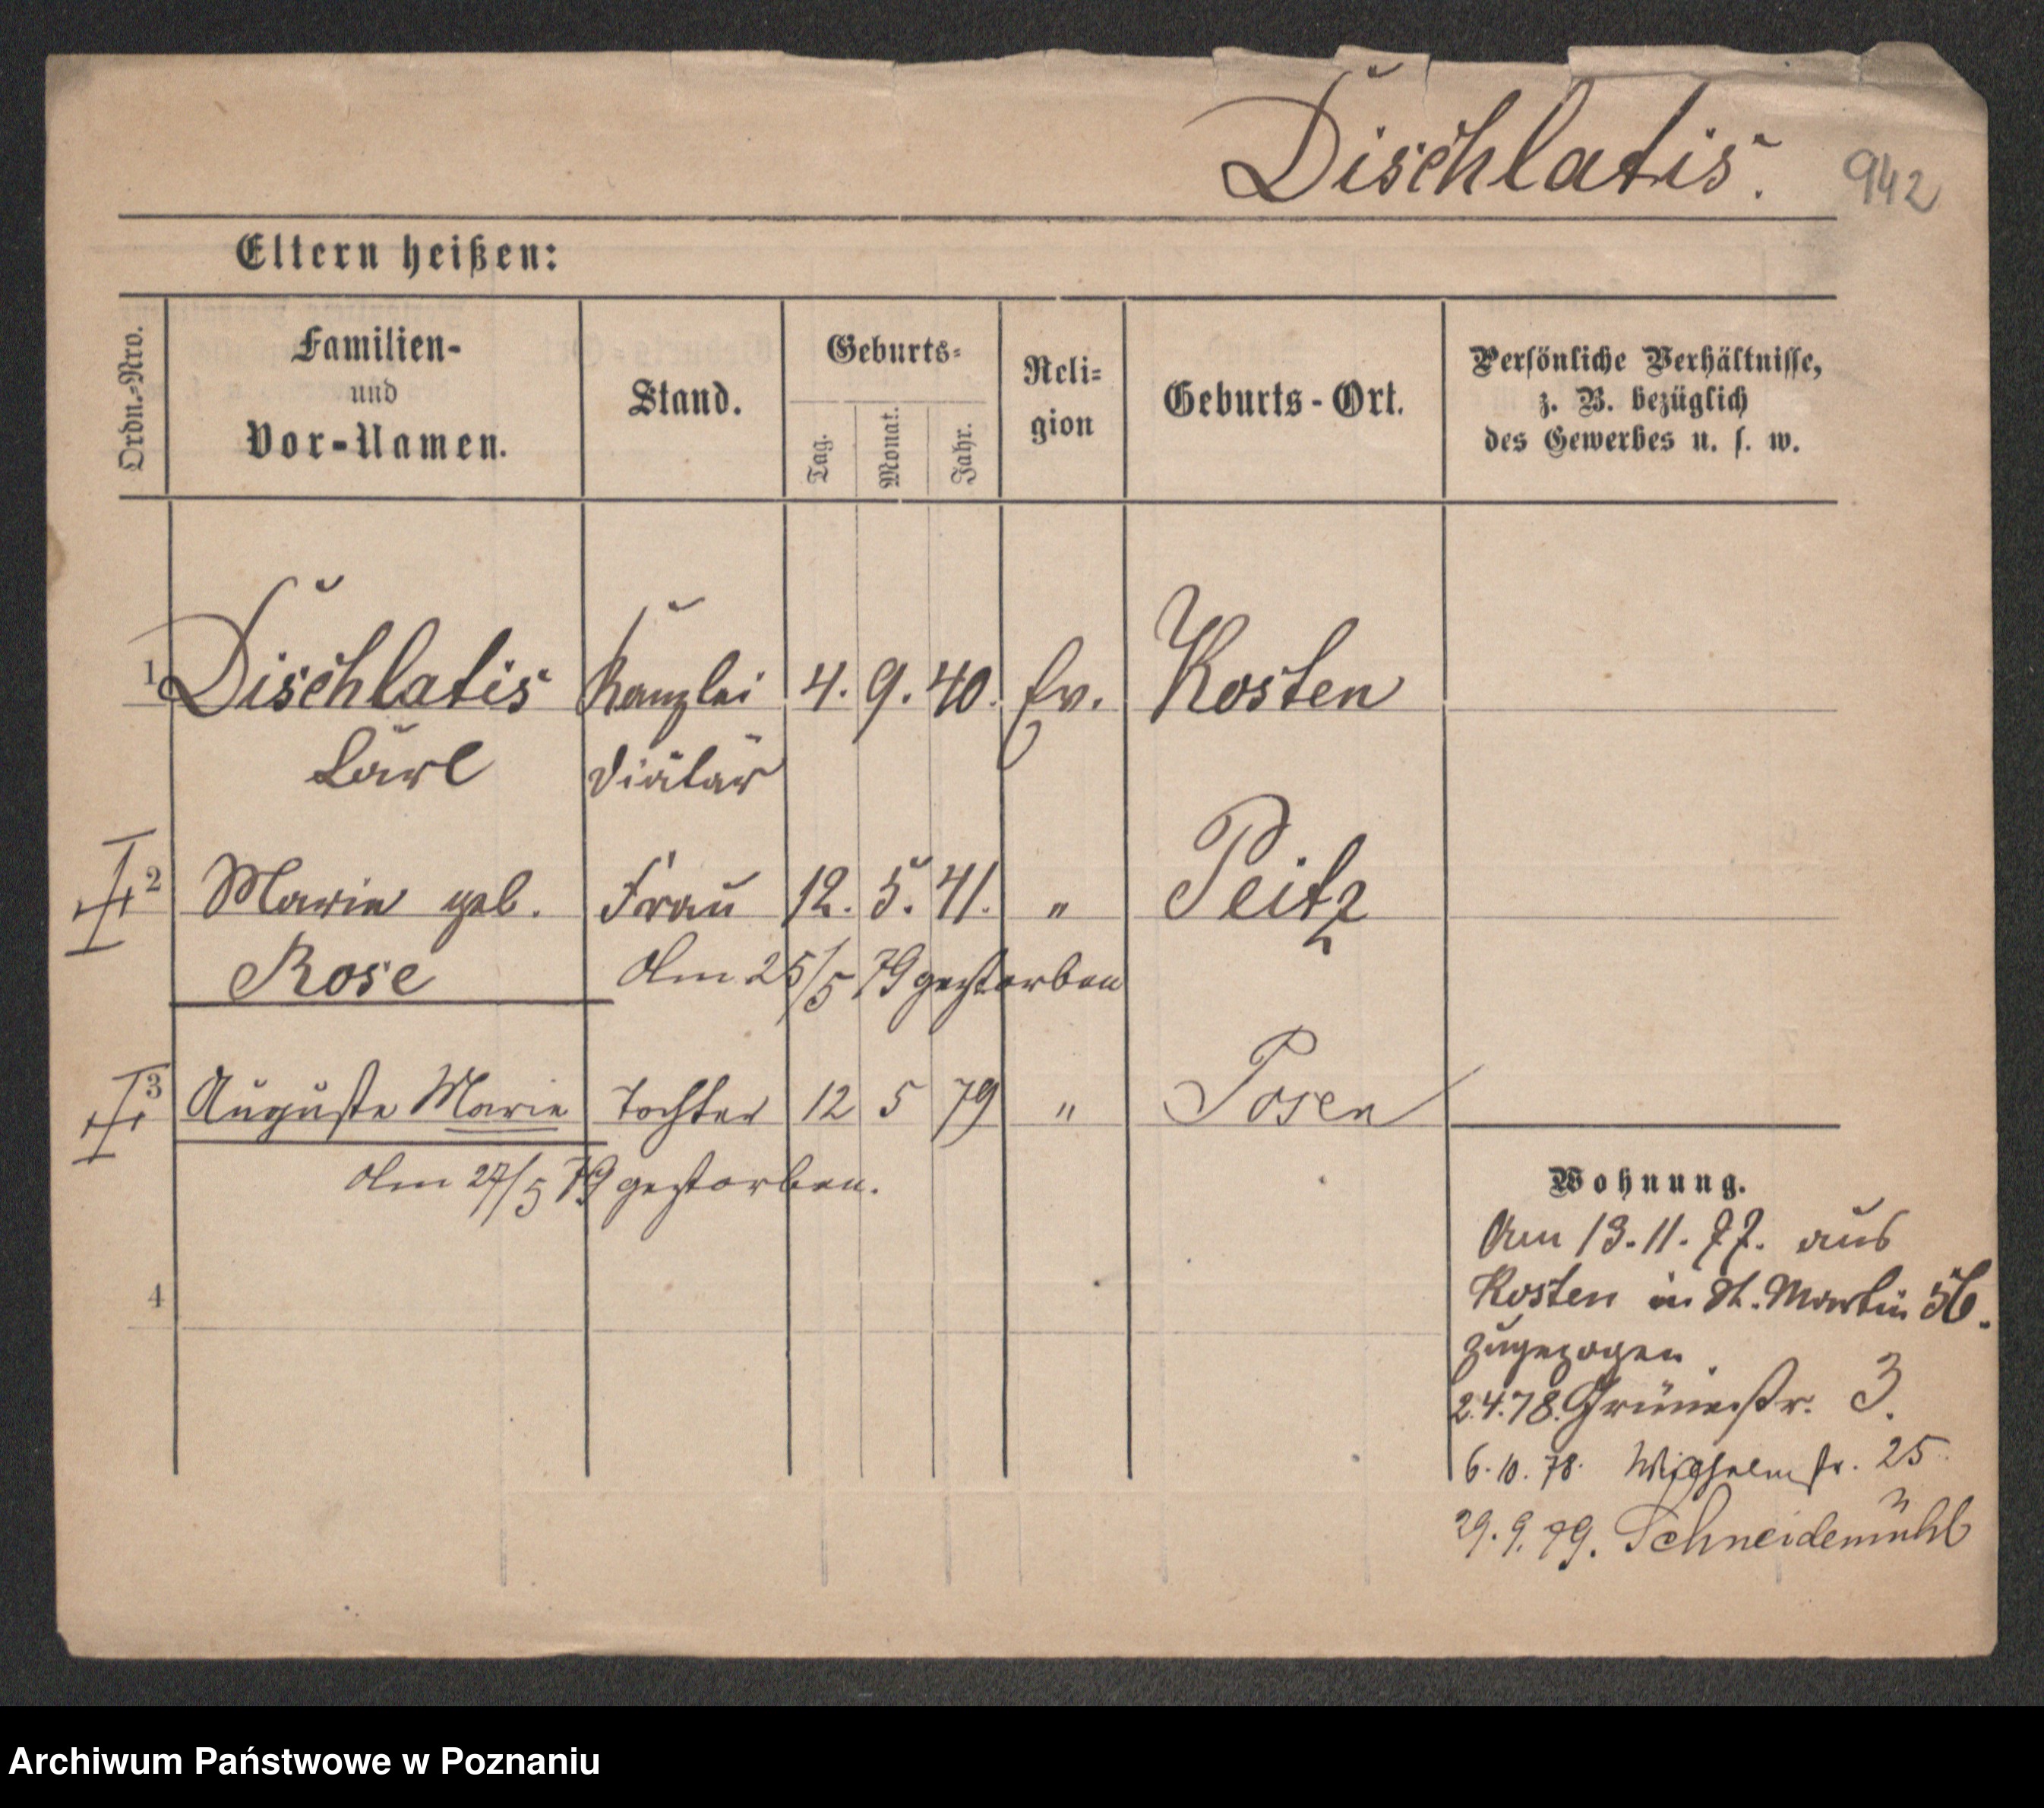 Dischlatis.
942
Eltern heißen:
Ordn.-Nro.
Familien-
und
Vor-Namen.
Stand.
Geburts-
Tag.
Monat.
Jahr.
Reli-
gion
Geburts-Ort.
Persönliche Verhältnisse,
z. B. bezüglich
des Gewerbes u. s. w.
1 Dischlatis Kanzlei 4. 9. 40. Ev. Kosten
Carl Diätar
2 Marie geb. Frau 12. 5. 41. " Peitz
Rose Am 25/5 79 gestorben
3 Auguste Marie Tochter 12 5 79 " Posen
Am 27/5 79 gestorben.
4
Wohnung.
Am 13.11.77. aus
Kosten in St. Martin 56.
zugezogen.
2.4.78. Grünestr. 3.
6.10.78. Wilhelmstr. 25.
29.9.79. Schneidemühl
Archiwum Państwowe w Poznaniu